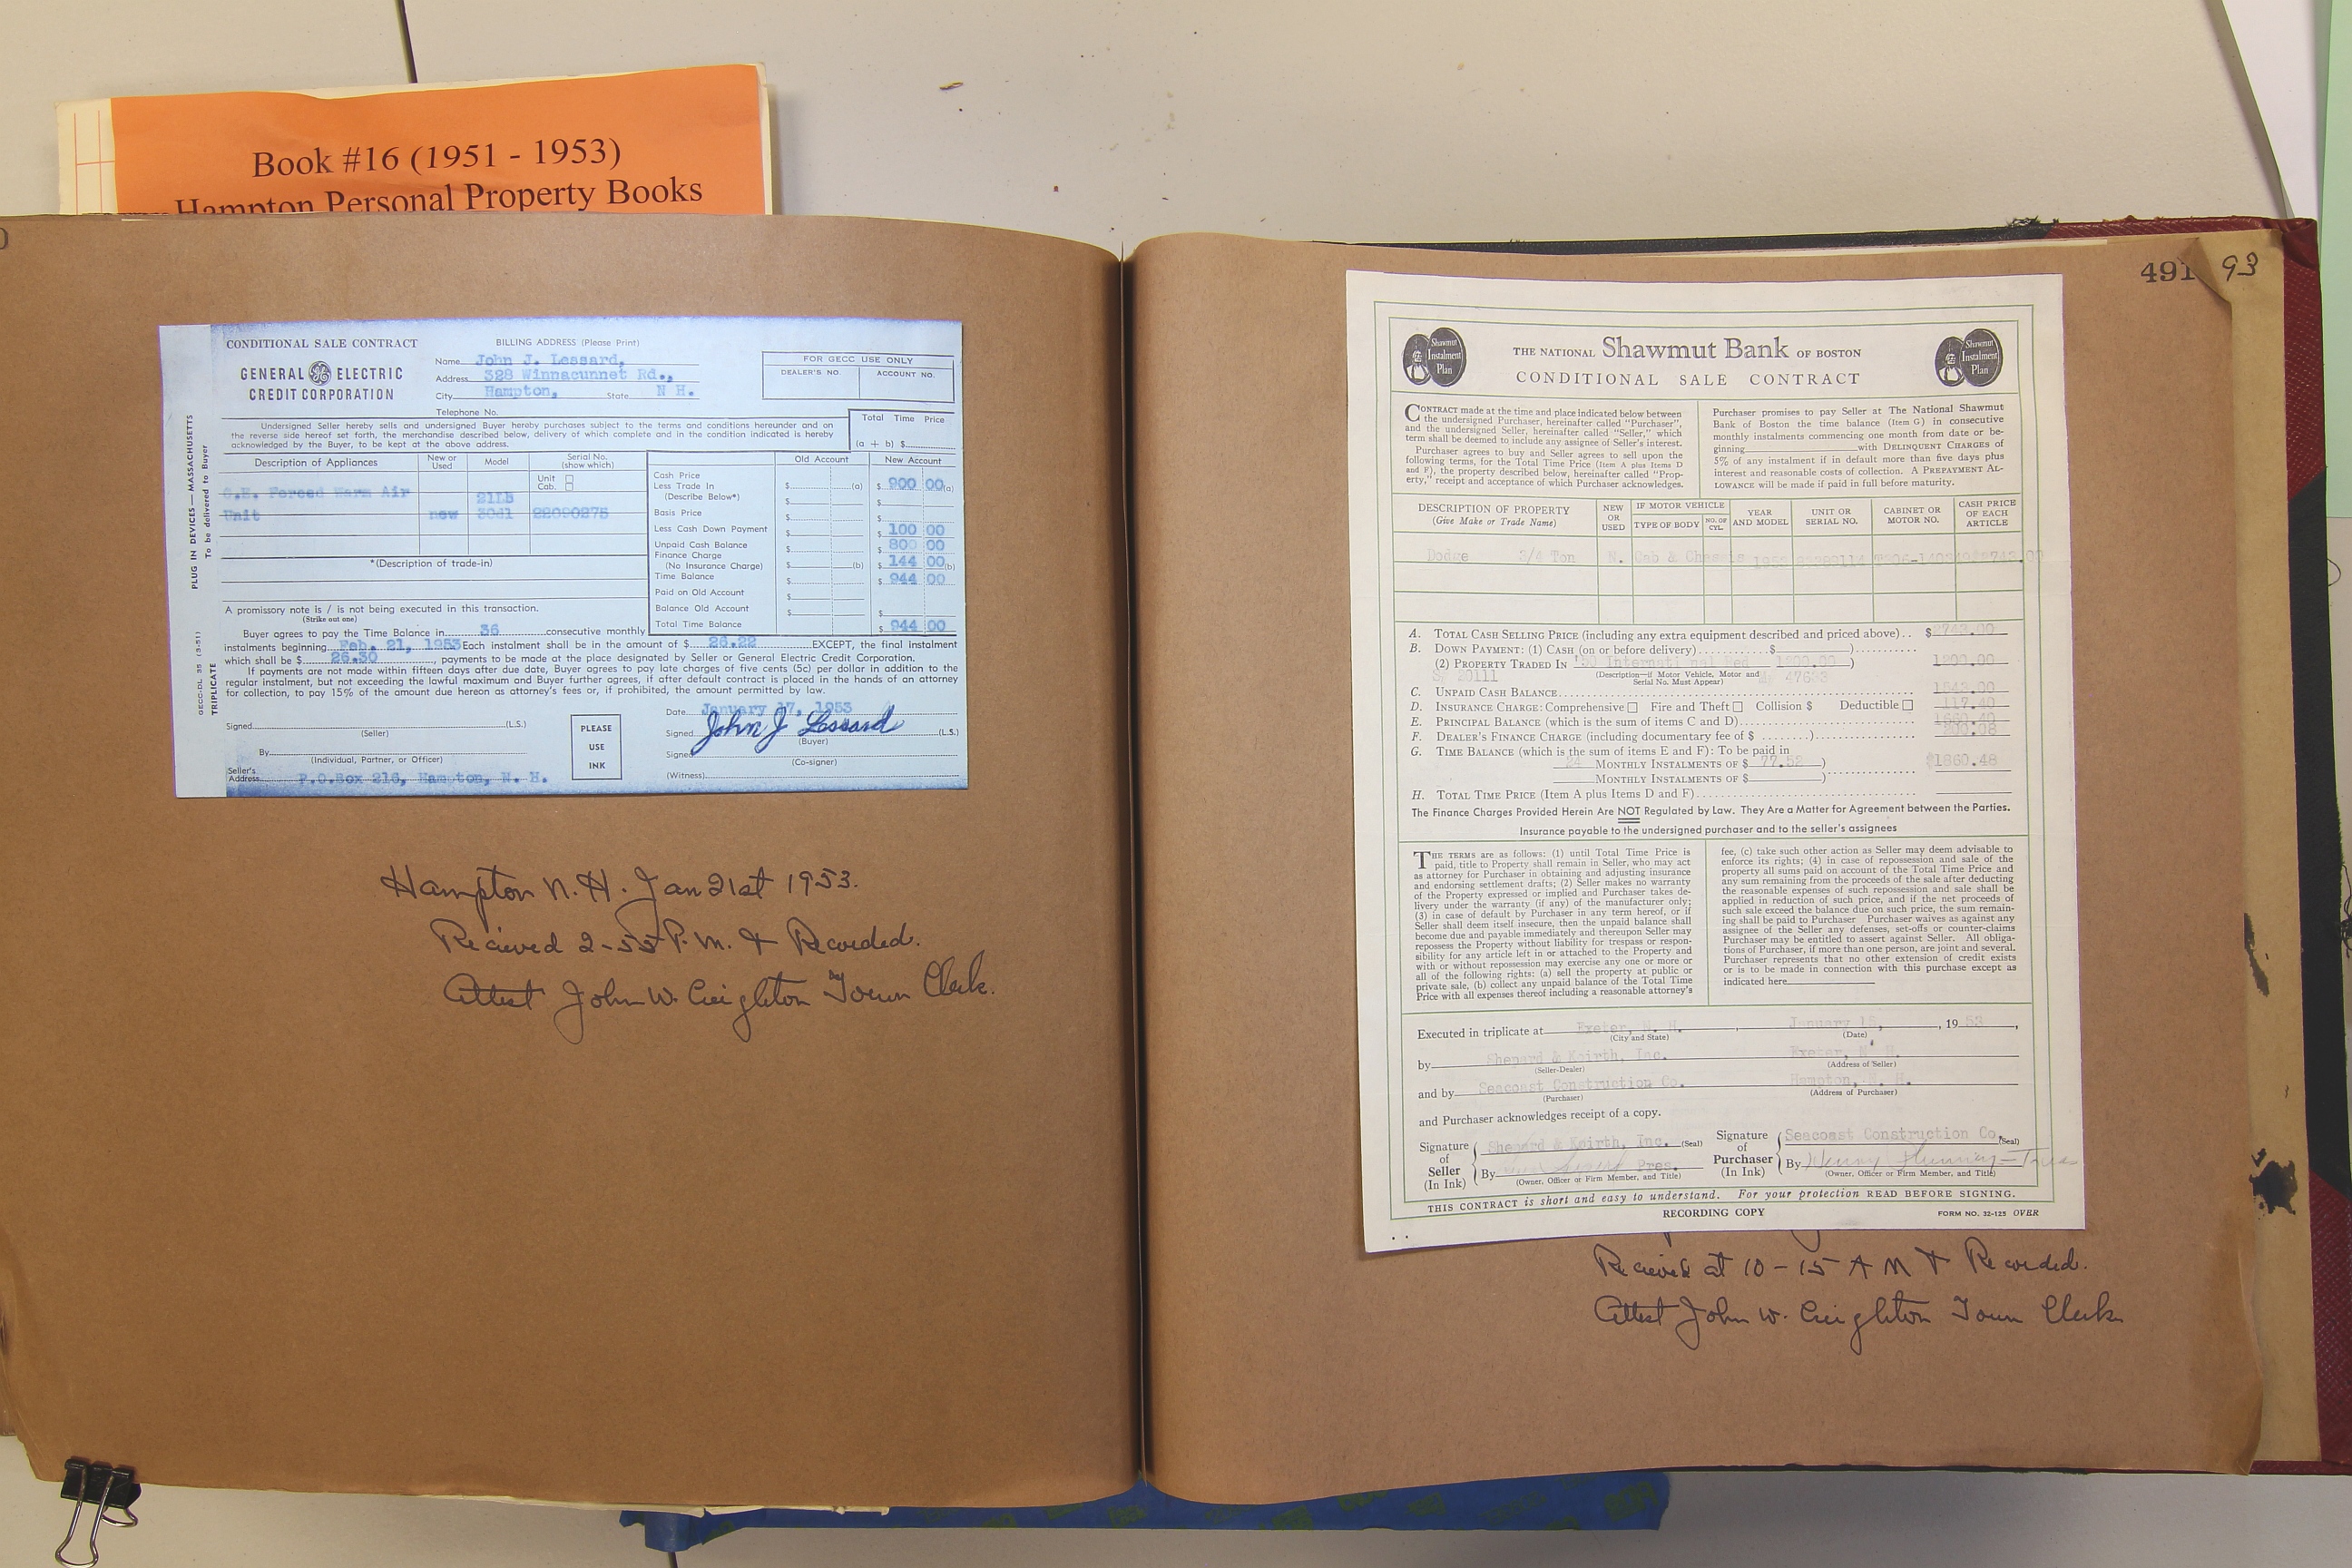 Book #16 (1951 - 1953)
Hampton Personal Property Books
CONDITIONAL SALE CONTRACT
GENERAL ELECTRIC
CREDIT CORPORATION
BILLING ADDRESS (Please Print)
Name John J. Lessard,
Address 328 Winnacunnet Rd.,
City Hampton, State N H.
Telephone No.
FOR GECC USE ONLY
DEALER'S NO. ACCOUNT NO.
PLUG IN DEVICES — MASSACHUSETTS
To be delivered to Buyer
GECC-DL 35 (3-51)
TRIPLICATE
Undersigned Seller hereby sells and undersigned Buyer hereby purchases subject to the terms and conditions hereunder and on
the reverse side hereof set forth, the merchandise described below, delivery of which complete and in the condition indicated is hereby
acknowledged by the Buyer, to be kept at the above address.
Total Time Price
(a + b) $
Description of Appliances New or Used Model Serial No. (show which)
Unit
Cab.
G.E. Forced Warm Air 21LB
Unit new 30d1 22090275
*(Description of trade-in)
Old Account New Account
Cash Price
Less Trade In $ (a) $ 900 00 (a)
(Describe Below*) $ $
Basis Price $ $
Less Cash Down Payment $ $ 100 00
Unpaid Cash Balance $ $ 800 00
Finance Charge
(No Insurance Charge) $ (b) $ 144 00 (b)
Time Balance $ $ 944 00
Paid on Old Account $
Balance Old Account $ $
Total Time Balance $ 944 00
A promissory note is / is not being executed in this transaction.
(Strike out one)
Buyer agrees to pay the Time Balance in 36 consecutive monthly
instalments beginning Feb. 21, 1953 Each instalment shall be in the amount of $ 26.22 EXCEPT, the final instalment
which shall be $ 26.30, payments to be made at the place designated by Seller or General Electric Credit Corporation.
If payments are not made within fifteen days after due date, Buyer agrees to pay late charges of five cents (5c) per dollar in addition to the
regular instalment, but not exceeding the lawful maximum and Buyer further agrees, if after default contract is placed in the hands of an attorney
for collection, to pay 15% of the amount due hereon as attorney's fees or, if prohibited, the amount permitted by law.
Date January 17, 1953
Signed (L.S.)
(Seller)
By
(Individual, Partner, or Officer)
Seller's
Address P.O.Box 216, Hampton, N. H.
PLEASE
USE
INK
Signed John J Lessard (L.S.)
(Buyer)
Signed
(Co-signer)
(Witness)
Hampton N.H. Jan 21st 1953.
Recieved 2-55 P.M. & Recorded.
Attest John W. Creighton Town Clerk.
491
93
Shawmut
Instalment
Plan
THE NATIONAL Shawmut Bank OF BOSTON
CONDITIONAL SALE CONTRACT
Shawmut
Instalment
Plan
CONTRACT made at the time and place indicated below between
the undersigned Purchaser, hereinafter called "Purchaser",
and the undersigned Seller, hereinafter called "Seller," which
term shall be deemed to include any assignee of Seller's interest.
Purchaser agrees to buy and Seller agrees to sell upon the
following terms, for the Total Time Price (Item A plus Items D
and F), the property described below, hereinafter called "Prop-
erty," receipt and acceptance of which Purchaser acknowledges.
Purchaser promises to pay Seller at The National Shawmut
Bank of Boston the time balance (Item G) in consecutive
monthly instalments commencing one month from date or be-
ginning with DELINQUENT CHARGES of
5% of any instalment if in default more than five days plus
interest and reasonable costs of collection. A PREPAYMENT AL-
LOWANCE will be made if paid in full before maturity.
DESCRIPTION OF PROPERTY (Give Make or Trade Name) NEW OR USED IF MOTOR VEHICLE TYPE OF BODY NO. OF CYL. YEAR AND MODEL UNIT OR SERIAL NO. CABINET OR MOTOR NO. CASH PRICE OF EACH ARTICLE
Dodge 3/4 Ton N. Cab & Chassis 1953
A. TOTAL CASH SELLING PRICE (including any extra equipment described and priced above) $2743.00
B. DOWN PAYMENT: (1) CASH (on or before delivery) $ )
(2) PROPERTY TRADED IN '50 International Red 1200.00 ) 1200.00
(Description—if Motor Vehicle, Motor and
Serial No. Must Appear)
C. UNPAID CASH BALANCE 1543.00
D. INSURANCE CHARGE: Comprehensive Fire and Theft Collision $ Deductible 117.40
E. PRINCIPAL BALANCE (which is the sum of items C and D) 1660.40
F. DEALER'S FINANCE CHARGE (including documentary fee of $ ) 200.08
G. TIME BALANCE (which is the sum of items E and F): To be paid in
24 MONTHLY INSTALMENTS OF $ 77.52 ) $1860.48
MONTHLY INSTALMENTS OF $ )
H. TOTAL TIME PRICE (Item A plus Items D and F)
The Finance Charges Provided Herein Are NOT Regulated by Law. They Are a Matter for Agreement between the Parties.
Insurance payable to the undersigned purchaser and to the seller's assignees
THE TERMS are as follows: (1) until Total Time Price is
paid, title to Property shall remain in Seller, who may act
as attorney for Purchaser in obtaining and adjusting insurance
and endorsing settlement drafts; (2) Seller makes no warranty
of the Property expressed or implied and Purchaser takes de-
livery under the warranty (if any) of the manufacturer only;
(3) in case of default by Purchaser in any term hereof, or if
Seller shall deem itself insecure, then the unpaid balance shall
become due and payable immediately and thereupon Seller may
repossess the Property without liability for trespass or respon-
sibility for any article left in or attached to the Property and
with or without repossession may exercise any one or more or
all of the following rights: (a) sell the property at public or
private sale, (b) collect any unpaid balance of the Total Time
Price with all expenses thereof including a reasonable attorney's
fee, (c) take such other action as Seller may deem advisable to
enforce its rights; (4) in case of repossession and sale of the
property all sums paid on account of the Total Time Price and
any sum remaining from the proceeds of the sale after deducting
the reasonable expenses of such repossession and sale shall be
applied in reduction of such price, and if the net proceeds of
such sale exceed the balance due on such price, the sum remain-
ing shall be paid to Purchaser Purchaser waives as against any
assignee of the Seller any defenses, set-offs or counter-claims
Purchaser may be entitled to assert against Seller. All obliga-
tions of Purchaser, if more than one person, are joint and several.
Purchaser represents that no other extension of credit exists
or is to be made in connection with this purchase except as
indicated here
Executed in triplicate at Exeter, N. H. , January 15, , 19 53 ,
(City and State) (Date)
by Shepard & Keirth, Inc. Exeter, N. H.
(Seller-Dealer) (Address of Seller)
and by Seacoast Construction Co. Hampton, N. H.
(Purchaser) (Address of Purchaser)
and Purchaser acknowledges receipt of a copy.
Signature
of
Seller
(In Ink)
Shepard & Keirth, Inc. (Seal)
By Pres.
(Owner, Officer or Firm Member, and Title)
Signature
of
Purchaser
(In Ink)
Seacoast Construction Co. (Seal)
By Treas
(Owner, Officer or Firm Member, and Title)
THIS CONTRACT is short and easy to understand. For your protection READ BEFORE SIGNING.
RECORDING COPY
FORM NO. 32-125 OVER
Recieved at 10-15 A M & Recorded.
Attest John W. Creighton Town Clerk